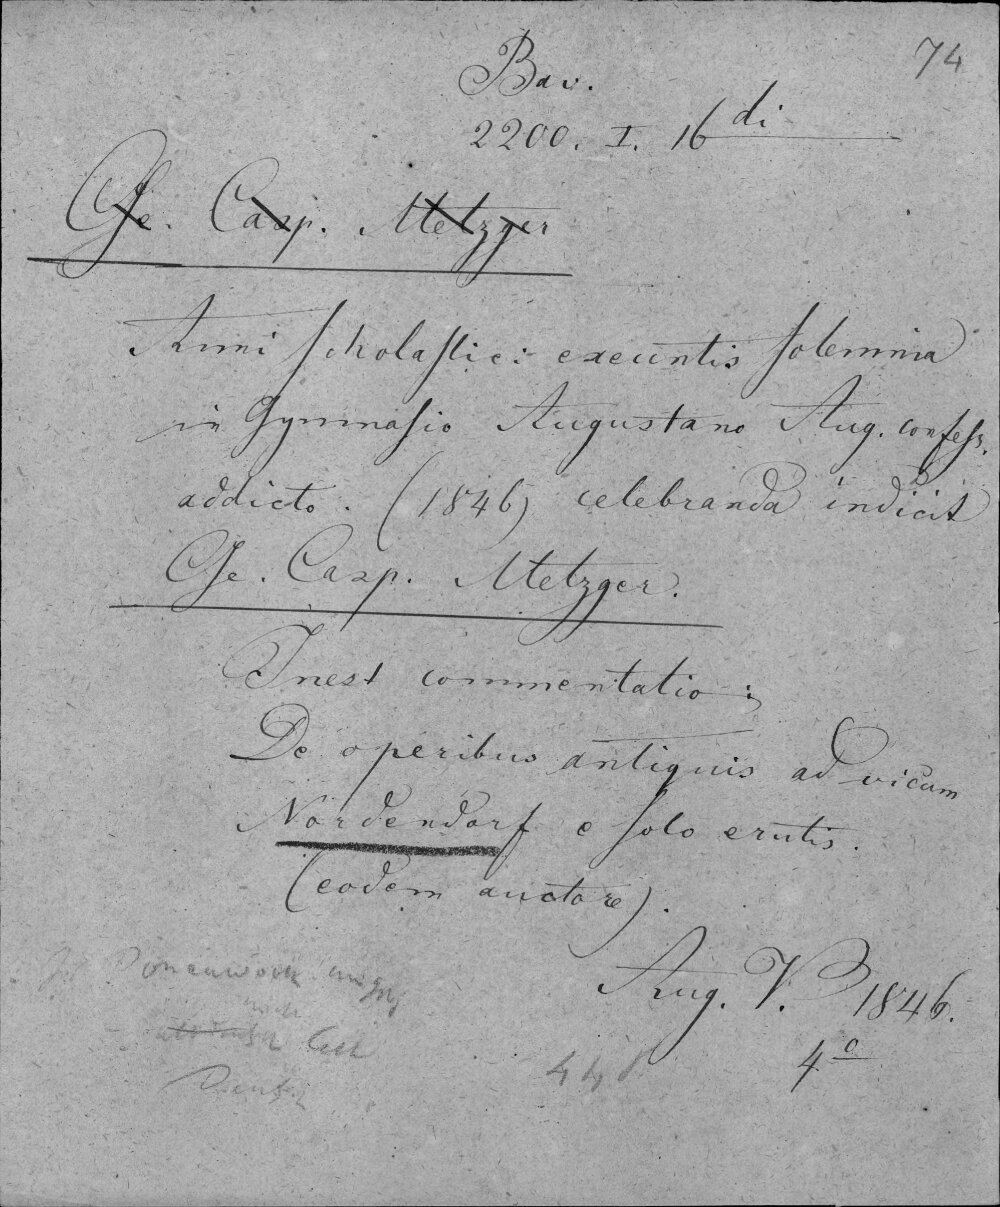 74
Bav.
2200. I. 16 di
Ge. Casp. Metzger
Anni scholastici exeuntis solemnia
in Gymnasio Augustano Aug. confess.
addicto. (1846) celebranda indicit
Ge. Casp. Metzger.
Inest commentatio:
De operibus antiquis ad vicum
Nordendorf e solo erutis.
(eodem auctore).
Aug. V. 1846.
4o